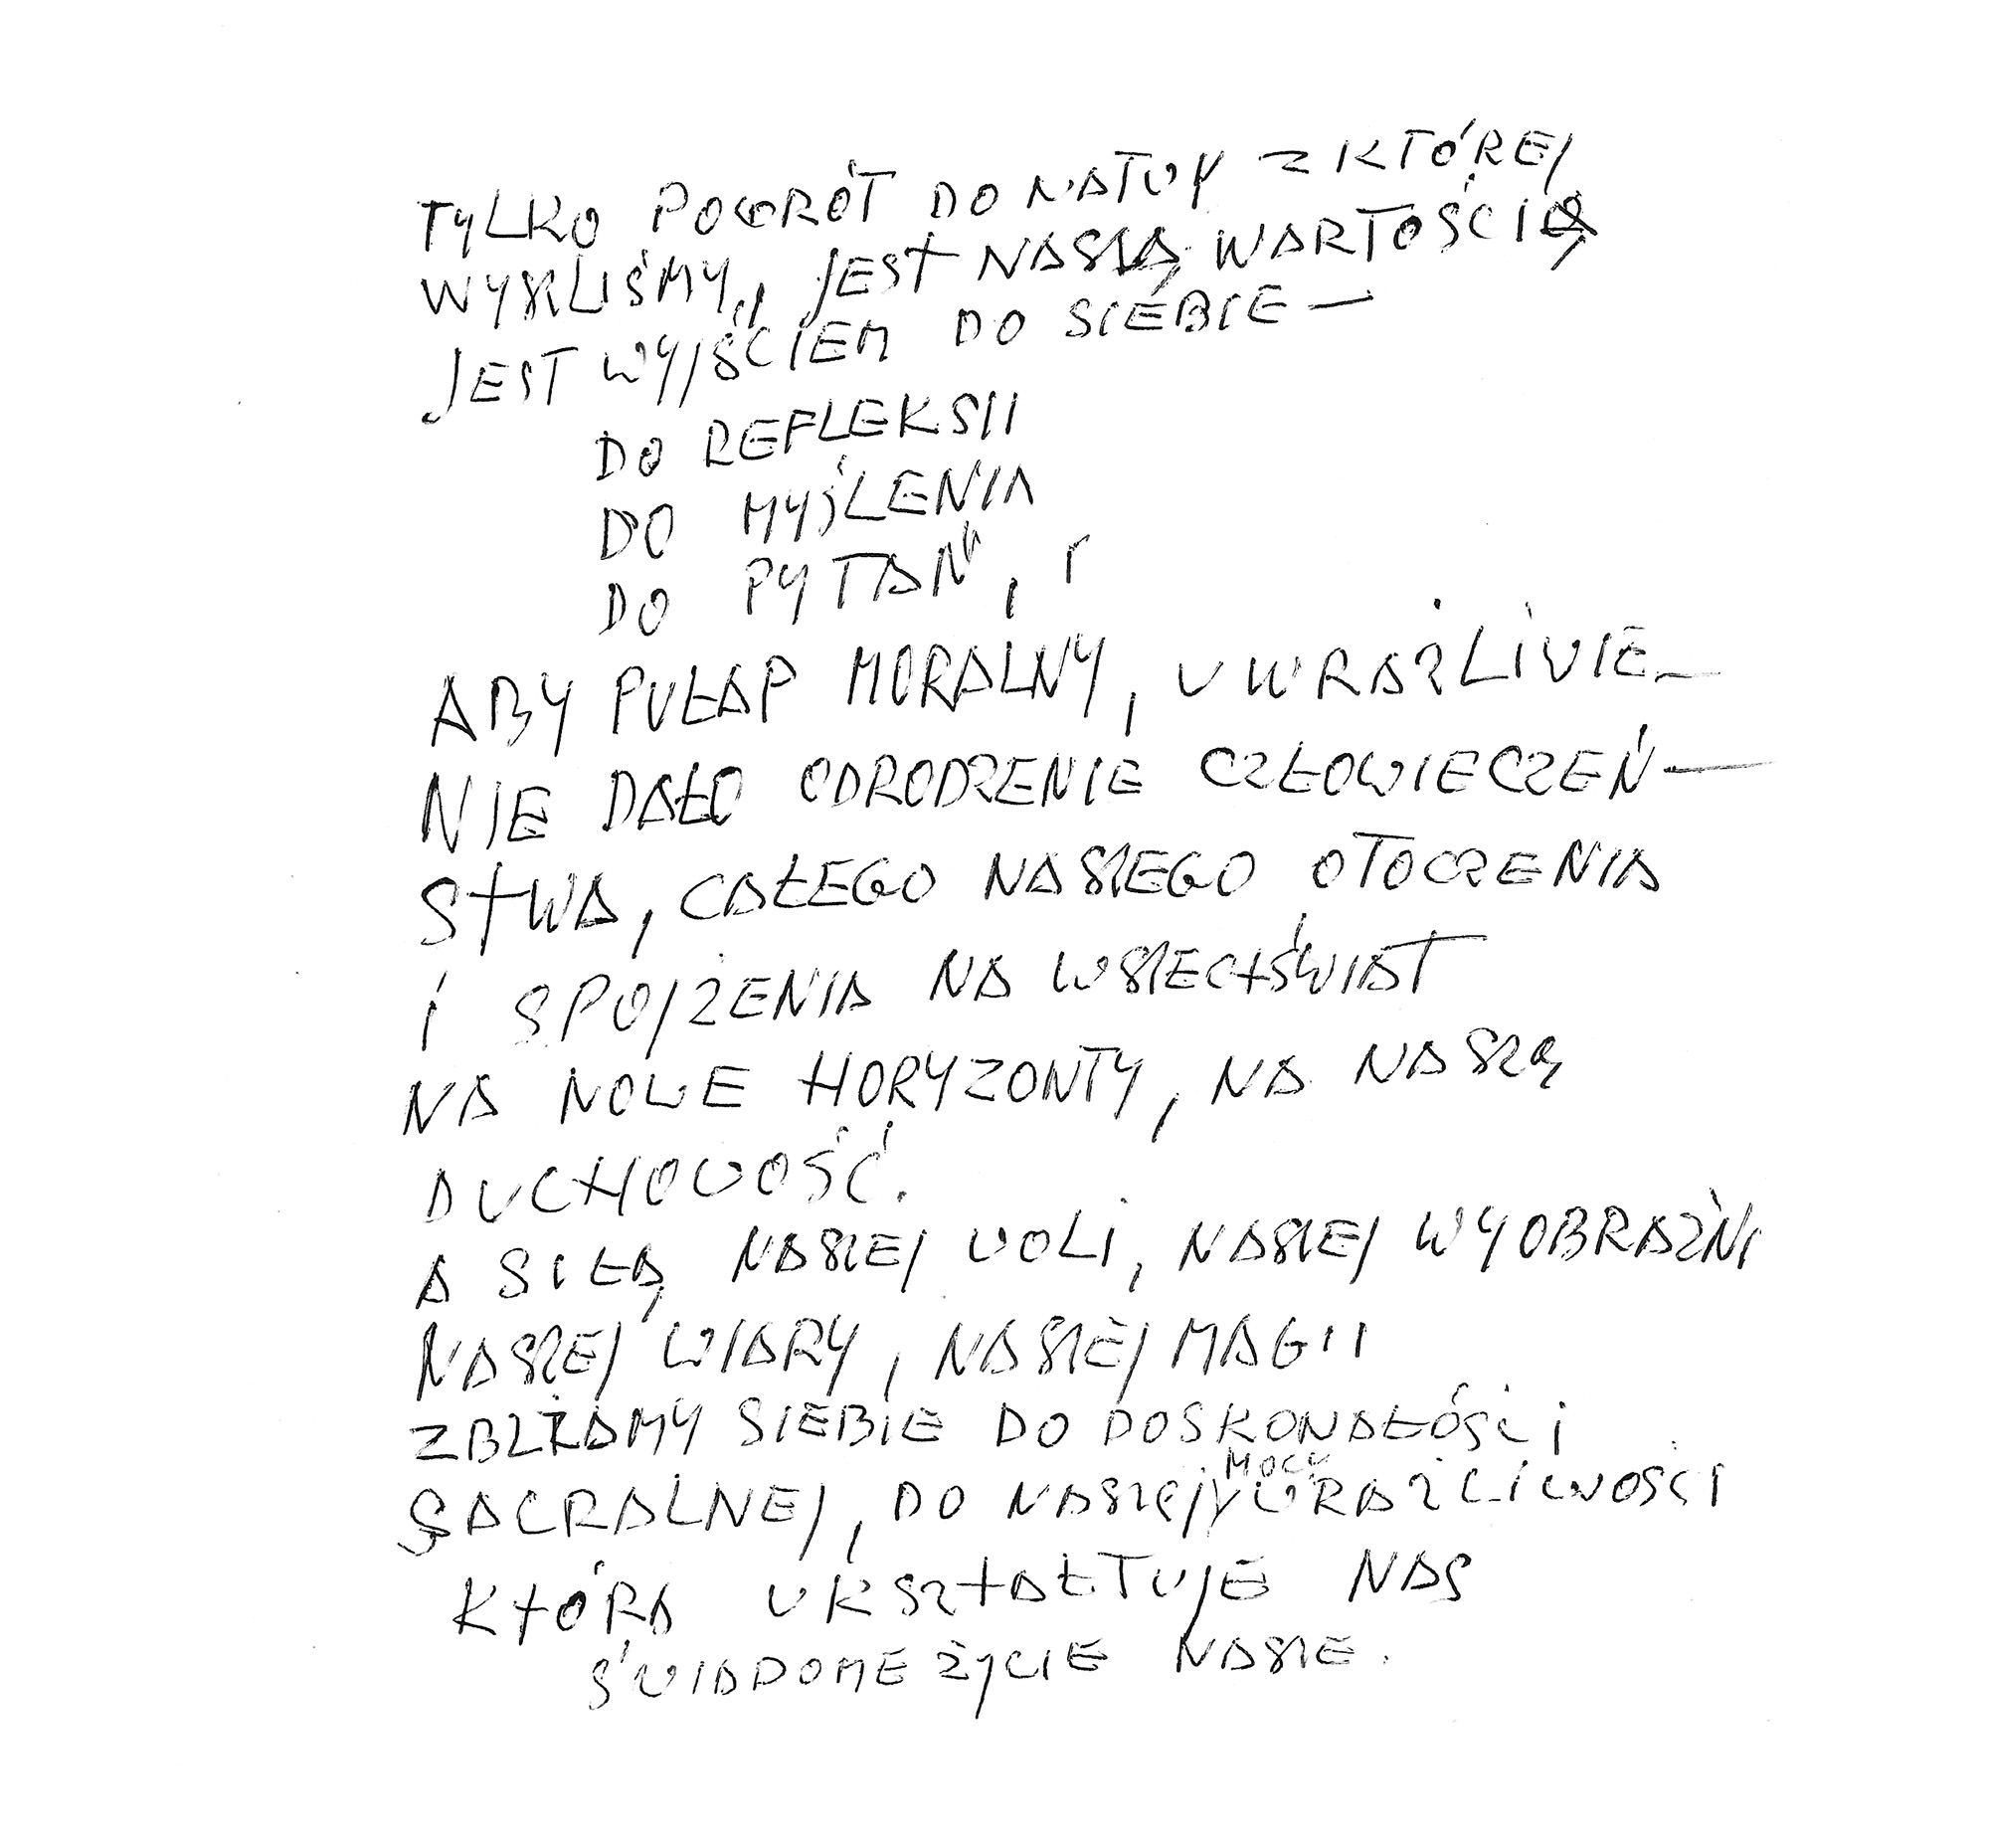 TYLKO POWRÓT DO NATUY Z KTÓREJ
WYSZLIŚMY, JEST NASZĄ WARTOŚCIĄ
JEST WYJŚCIEM DO SIEBIE —
DO REFLEKSII
DO MYŚLENIA
DO PYTAŃ,
ABY PUŁAP MORALNY, UWRAŻLIWIE-
NIE DAŁO ODRODZENIE CZŁOWIECZEŃ-
STWA, CAŁEGO NASZEGO OTOCZENIA
I SPOJŻENIA NA WSZECHŚWIAT
NA NOWE HORYZONTY, NA NASZĄ
DUCHOWOŚĆ.
A SIŁĄ NASZEJ WOLI, NASZEJ WYOBRAŹNI
NASZEJ WIARY, NASZEJ MAGII
ZBLŻAMY SIEBIE DO DOSKONAŁOŚCI
SACRALNEJ, DO NASZEJ MOCY WRAŻLIWOŚCI
KTÓRA UKSZTAŁTUJE NAS
ŚWIADOME ŻYCIE NASZE.